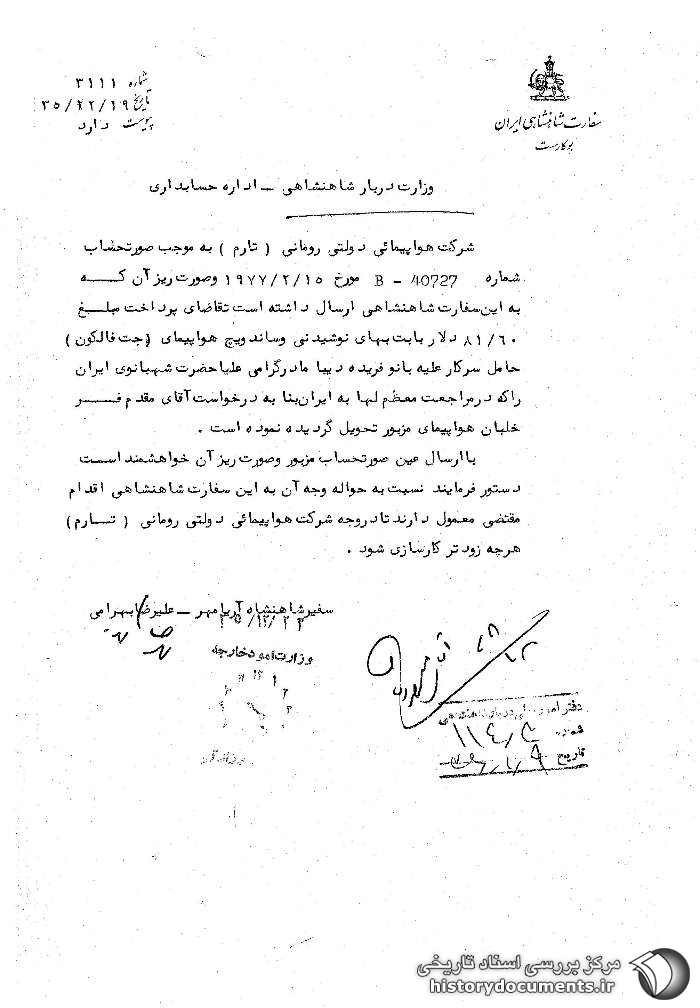 سفارت شاهنشاهی ایران
بوکارست
شماره ۳۱۱۱
تاریخ ۳۵/۱۲/۱۹
پیوست دارد
وزارت دربار شاهنشاهی – اداره حسابداری
شرکت هواپیمائی دولتی رومانی ( تارم ) به موجب صورتحساب
شماره B – 40727 مورخ ۱۹۷۷/۲/۱۵ وصورت ریز آن که
به این سفارت شاهنشاهی ارسال داشته است تقاضای پرداخت مبلغ
۸۱/۶۰ دلار بابت بهای نوشیدنی وساندویچ هواپیمای (جت فالکون)
حامل سرکار علیه بانو فریده دیبا مادرگرامی علیاحضرت شهبانوی ایران
راکه درمراجعت معظم لها به ایران بنا به درخواست آقای مقدم فر
خلبان هواپیمای مزبور تحویل گردیده نموده است .
باارسال عین صورتحساب مزبور وصورت ریز آن خواهشمند است
دستور فرمایند نسبت به حواله وجه آن به این سفارت شاهنشاهی اقدام
مقتضی معمول دارند تادروجه شرکت هواپیمائی دولتی رومانی ( تارم )
هرچه زودتر کارسازی شود .
سفیرشاهنشاه آریامهر – علیرضا بهرامی
۳۵/۱۲/۲۳
وزارت امور خارجه
دفتر امور مالی دربار شاهنشاهی
شماره
تاریخ
مرکز بررسی اسناد تاریخی
historydocuments.ir